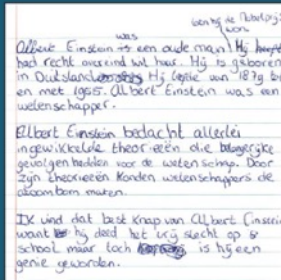 was toen hij de Nobelprijs won
Albert Einstein is een oude man! Hij
had recht overeind wit haar. Hij is geboren
in Duitsland Hij leefde van 1879 t
en met 1955. Albert Einstein was een
wetenschapper.
Albert Einstein bedacht allerlei
ingewikkelde theorieën die belangrijke
gevolgen hadden voor de wetenschap. Door
zijn theorieeën konden wetenschappers de
atoombom maken.
Ik vind dat best knap van Albert Einstein
want hij deed het vrij slecht op s
school maar toch is hij een
genie geworden.